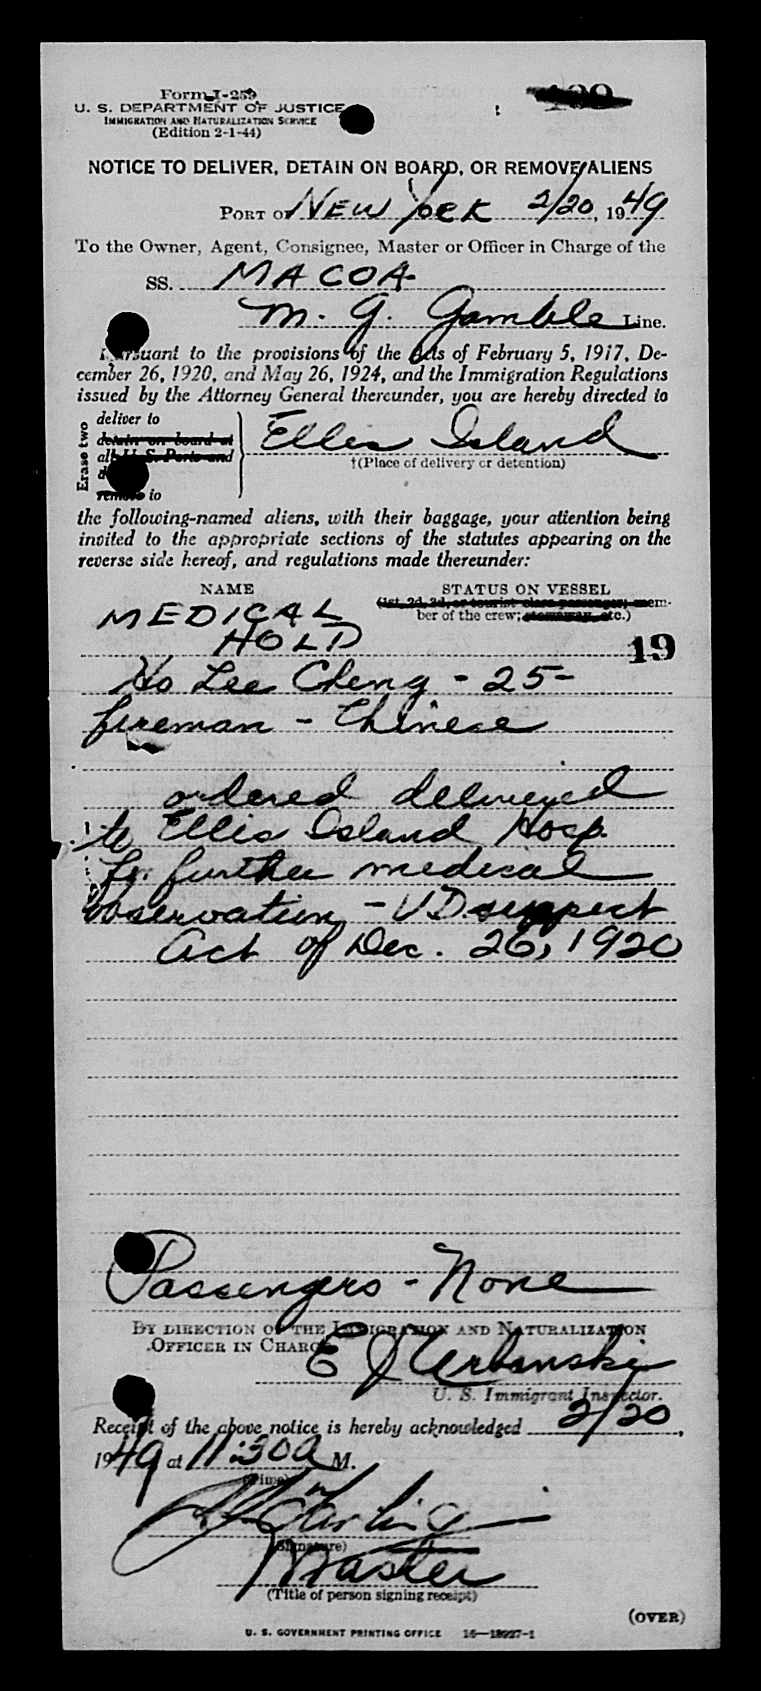 Form I-259
U. S. DEPARTMENT OF JUSTICE
IMMIGRATION AND NATURALIZATION SERVICE
(Edition 2-1-44)
NOTICE TO DELIVER, DETAIN ON BOARD, OR REMOVE ALIENS
PORT OF NEW YORK 2/20, 1949
To the Owner, Agent, Consignee, Master or Officer in Charge of the
SS. MACOA
M. G. Gamble Line.
Pursuant to the provisions of the Acts of February 5, 1917, De-
cember 26, 1920, and May 26, 1924, and the Immigration Regulations
issued by the Attorney General thereunder, you are hereby directed to
Erase two
deliver to
detain on board at
all U. S. Ports and
remove to
Ellis Island
†(Place of delivery or detention)
the following-named aliens, with their baggage, your attention being
invited to the appropriate sections of the statutes appearing on the
reverse side hereof, and regulations made thereunder:
NAME STATUS ON VESSEL
(1st, 2d, 3d, or tourist class passenger; mem-
ber of the crew; stowaway, etc.)
MEDICAL
HOLD
19
Ho Lee Cheng - 25-
fireman - Chinese
ordered delivered
to Ellis Island Hosp.
for further medical
observation - VD suspect
Act of Dec. 26, 1920
Passengers - None
BY DIRECTION OF THE IMMIGRATION AND NATURALIZATION
OFFICER IN CHARGE
E J Urbanski
U. S. Immigrant Inspector.
Receipt of the above notice is hereby acknowledged 2/20,
1949 at 11:30 A M.
(Time)
(Signature)
Master
(Title of person signing receipt)
(OVER)
U. S. GOVERNMENT PRINTING OFFICE 16—18927-1